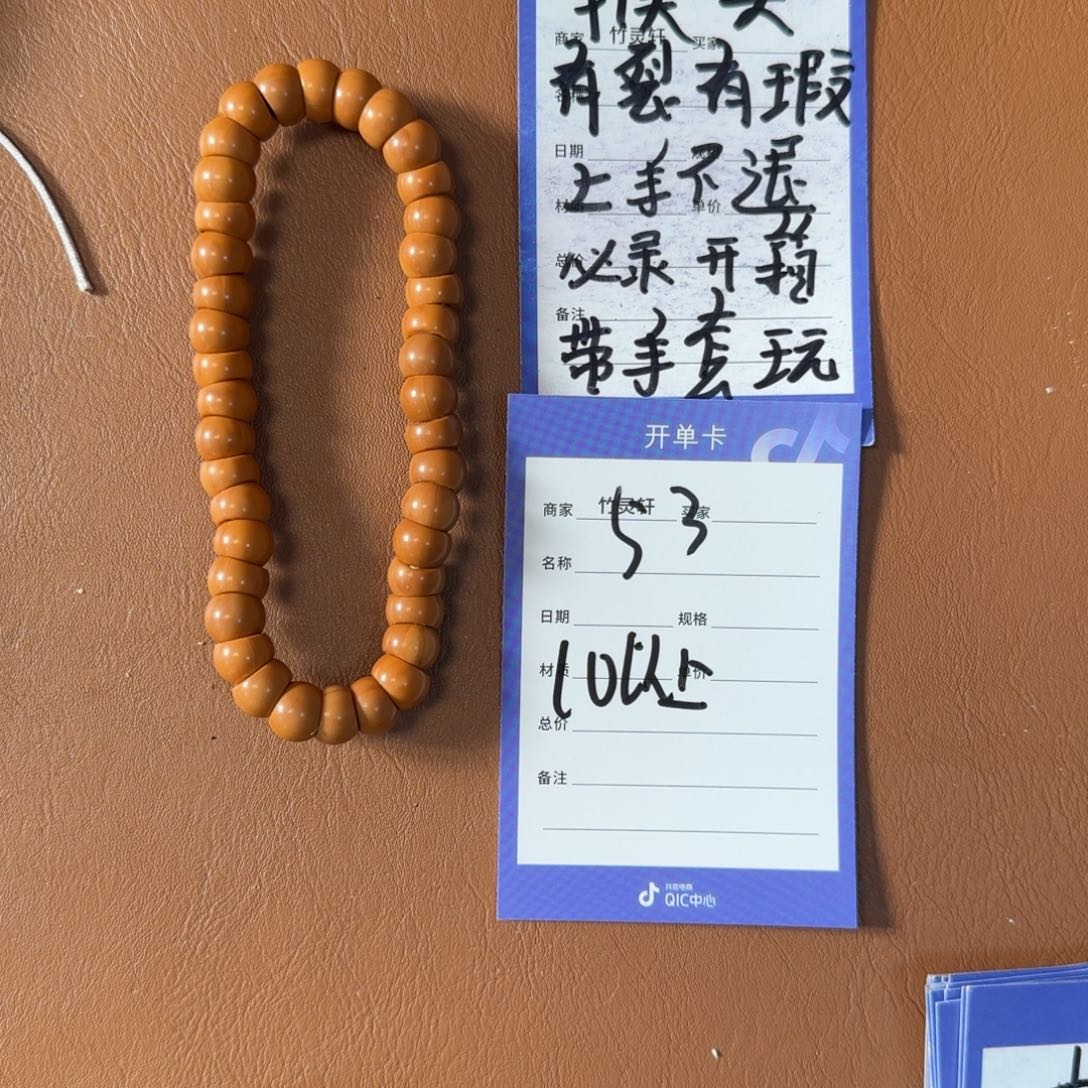 商家 竹灵轩 买家
有裂有瑕
日期
上手不退
单价
必录开箱
备注
带手套玩
开单卡
商家 竹灵轩 买家
53
名称
日期 规格
材质 单价
10以上
总价
备注
抖音电商
QIC中心